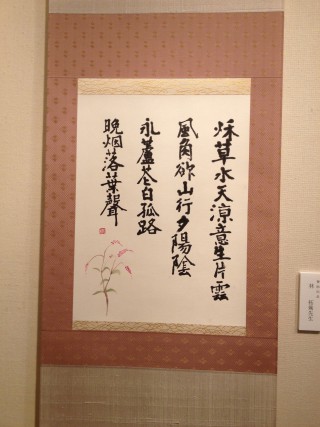 秋草水天涼意生片雲
風角欲山行夕陽陰
永蘆花白孤路
晩烟落葉聲